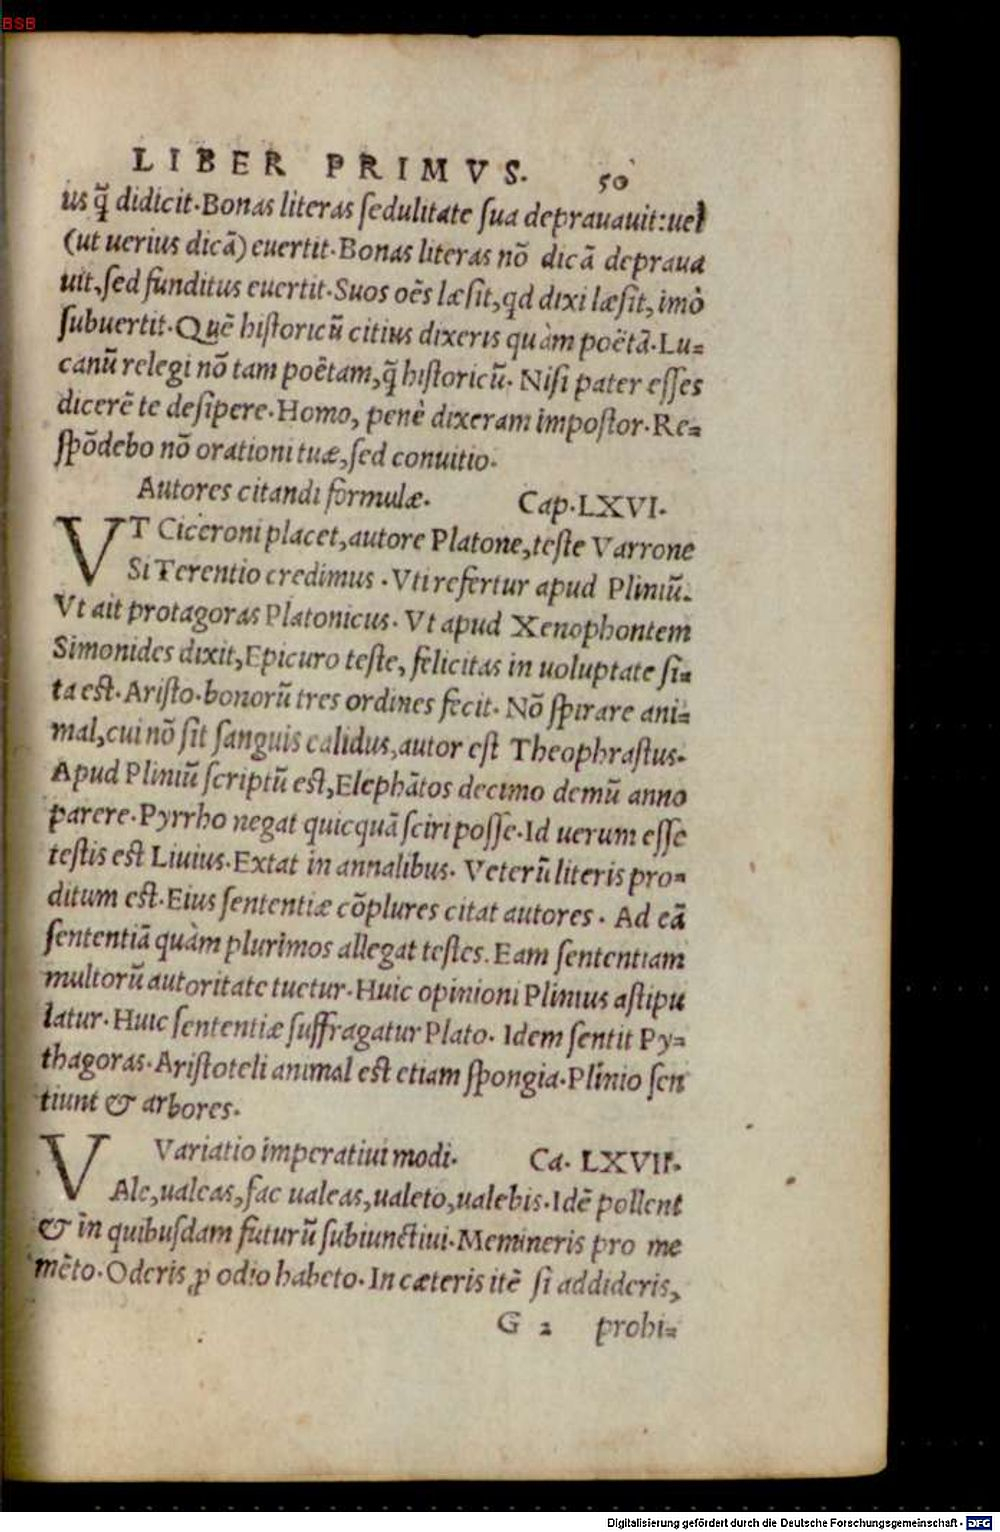 BSB
LIBER PRIMVS. 50
us q̃ didicit. Bonas literas ſedulitate ſua deprauauit: uel
(ut uerius dicã) euertit. Bonas literas nõ dicã depraua
uit, ſed funditus euertit. Suos oẽs læſit, qd dixi læſit, imò
ſubuertit. Quẽ hiſtoricũ citius dixeris quàm poëtã. Lu=
canũ relegi nõ tam poëtam, q̃ hiſtoricũ. Niſi pater eſſes
dicerẽ te deſipere. Homo, penè dixeram impoſtor. Re=
ſpõdebo nõ orationi tuæ, ſed conuitio.
Autores citandi formulæ. Cap. LXVI.
VT Ciceroni placet, autore Platone, teſte Varrone
Si Terentio credimus. Vti refertur apud Pliniũ.
Vt ait protagoras Platonicus. Vt apud Xenophontem
Simonides dixit, Epicuro teſte, felicitas in uoluptate ſi=
ta eſt. Ariſto. bonorũ tres ordines fecit. Nõ ſpirare ani=
mal, cui nõ ſit ſanguis calidus, autor eſt Theophraſtus.
Apud Pliniũ ſcriptũ eſt, Elephãtos decimo demũ anno
parere. Pyrrho negat quicquã ſciri poſſe. Id uerum eſſe
teſtis eſt Liuius. Extat in annalibus. Veterũ literis pro=
ditum eſt. Eius ſententiæ cõplures citat autores. Ad eã
ſententiã quàm plurimos allegat teſtes. Eam ſententiam
multorũ autoritate tuetur. Huic opinioni Plinius aſtipu
latur. Huic ſententiæ ſuffragatur Plato. Idem ſentit Py=
thagoras. Ariſtoteli animal eſt etiam ſpongia. Plinio ſen
tiunt & arbores.
Variatio imperatiui modi. Ca. LXVII.
VAle, ualeas, fac ualeas, ualeto, ualebis. Idẽ pollent
& in quibuſdam futurũ ſubiunctiui. Memineris pro me
mẽto. Oderis ꝓ odio habeto. In cæteris itẽ ſi addideris,
G 2 prohi=
Digitalisierung gefördert durch die Deutsche Forschungsgemeinschaft - DFG